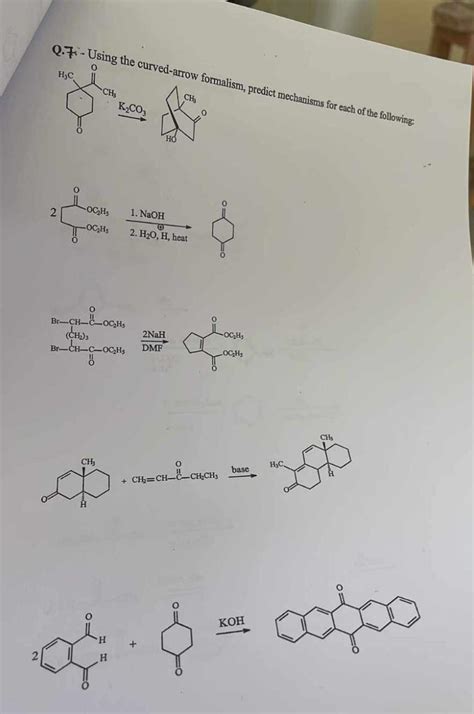 Q.7- - Using the curved-arrow formalism, predict mechanisms for each of the following:
H₃C O
CH₃
O
K₂CO₃
CH₃
O
HO
2
O
OC₂H₅
OC₂H₅
O
1. NaOH
2. H₂O, H⊕, heat
O
O
O
Br—CH—C—OC₂H₅
(CH₂)₃
Br—CH—C—OC₂H₅
O
2NaH
DMF
O
OC₂H₅
OC₂H₅
O
CH₃
O
H
+ CH₂=CH—C—CH₂CH₃
O
base
CH₃
H₃C
O
H
2
O
H
H
O
+
O
O
KOH
O
O